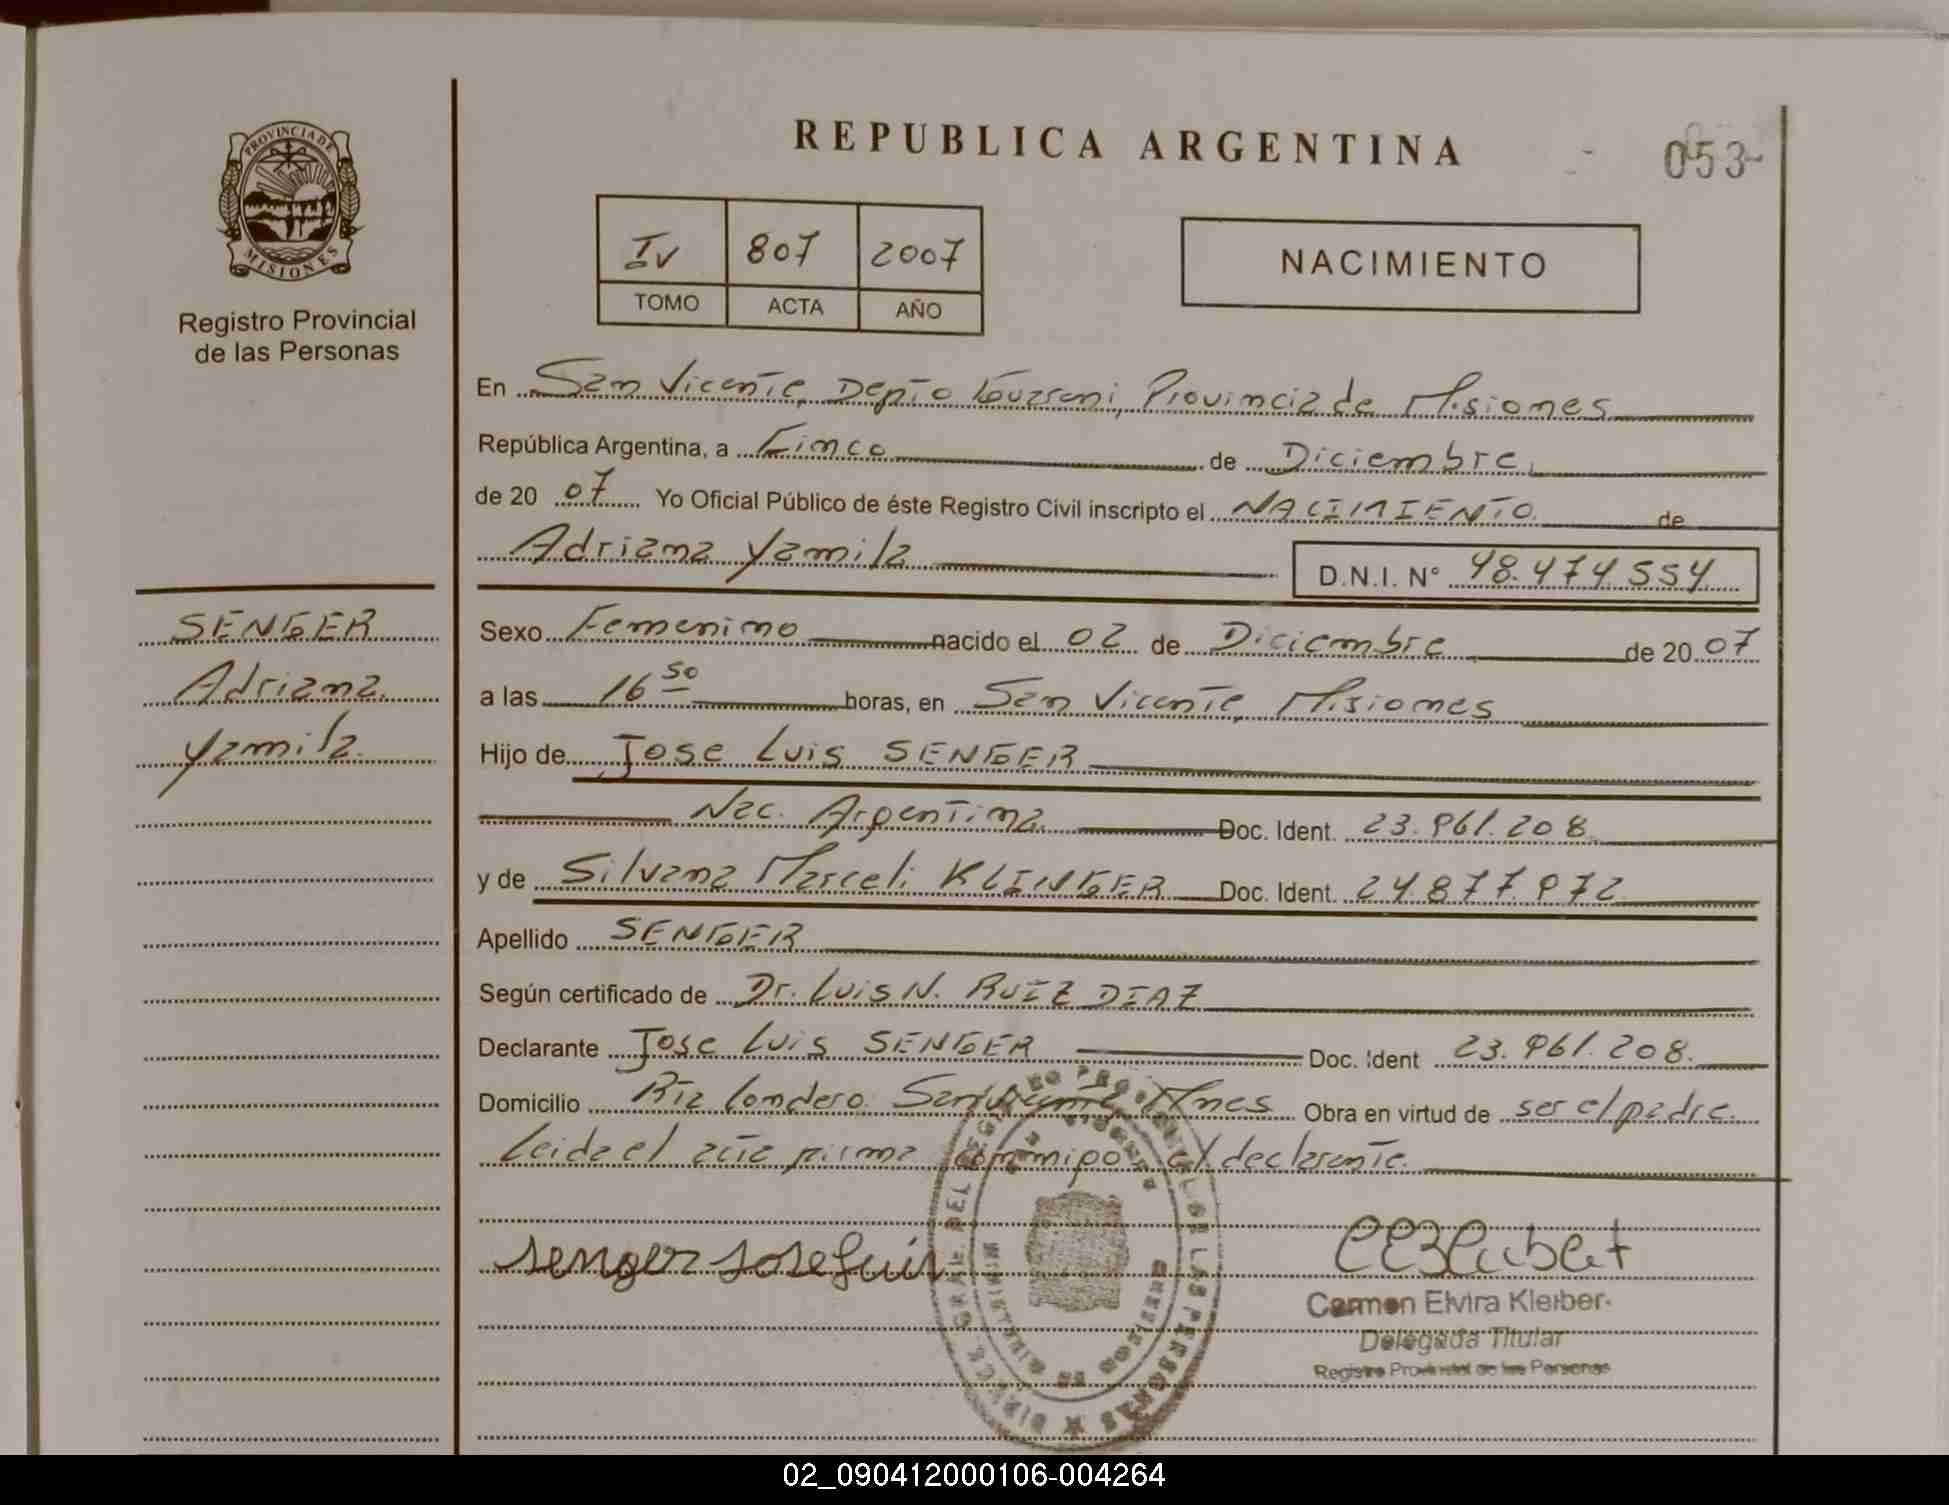 REPUBLICA ARGENTINA
053-
PROVINCIA DE
MISIONES
Registro Provincial
de las Personas
IV 807 2007
TOMO ACTA AÑO
NACIMIENTO
En San Vicente, Depto Guarani, Provincia de Misiones
República Argentina, a Cinco de Diciembre
de 20 07 Yo Oficial Público de éste Registro Civil inscripto el NACIMIENTO de
Adriana Yamila D.N.I. N° 48.474.554
SENGER
Adriana
Yamila
Sexo Femenino nacido el 02 de Diciembre de 20 07
a las 16 50 horas, en San Vicente, Misiones
Hijo de Jose Luis SENGER
Nac. Argentina Doc. Ident. 23.961.208
y de Silvana Marceli KLINGER Doc. Ident. 24.877.972
Apellido SENGER
Según certificado de Dr. Luis N. RUIZ DIAZ
Declarante Jose Luis SENGER Doc. Ident 23.961.208.
Domicilio Londero San Vicente Mnes Obra en virtud de ser el padre.
Leida el acta firma conmigo el declarante.
senger Jose Luis
Carmen Elvira Kleiber
Delegada Titular
Registro Provincial de las Personas
02_090412000106-004264